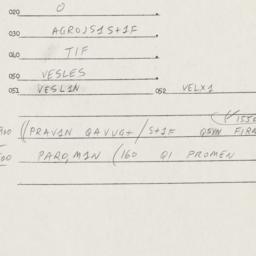 020 O
030 AGROJS1S+1F
040 TIF
050 VESLES
051 VESL1N 052 VELX1
((PRAV1N QAVUG+/S+1F QSVN FIRA
PARO,M1N (160 Q1 PROMEN